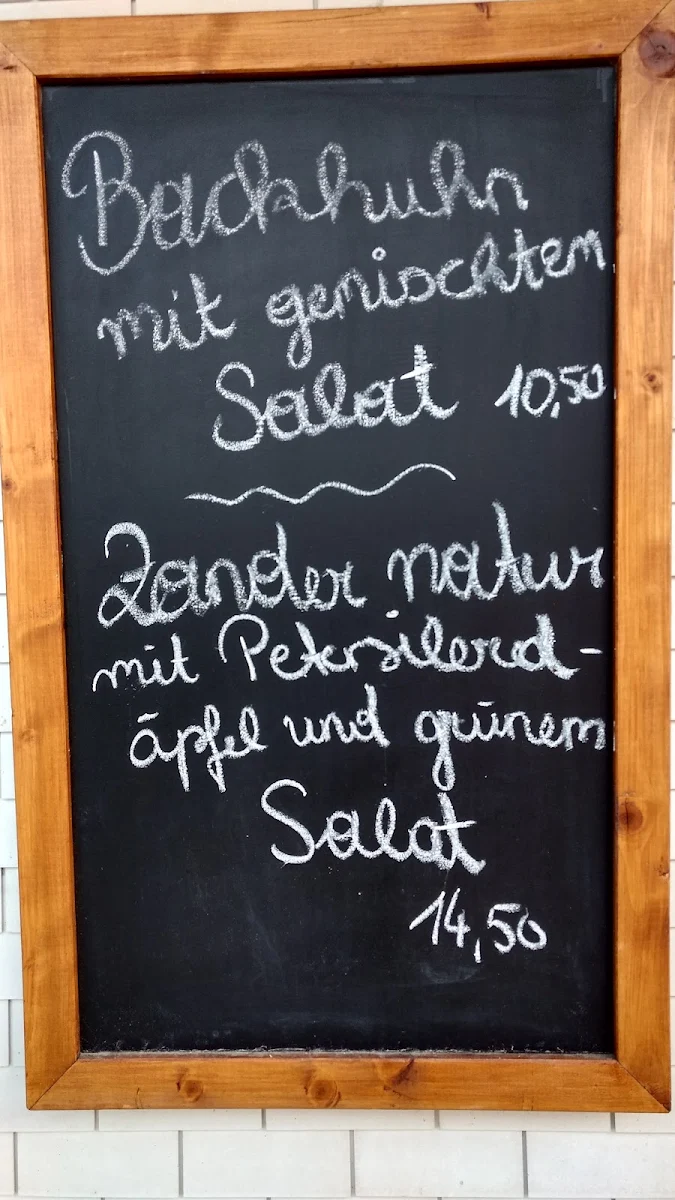 Backhuhn
mit gemischtem
Salat 10,50
Zander natur
mit Petersilerd-
äpfel und grünem
Salat
14,50